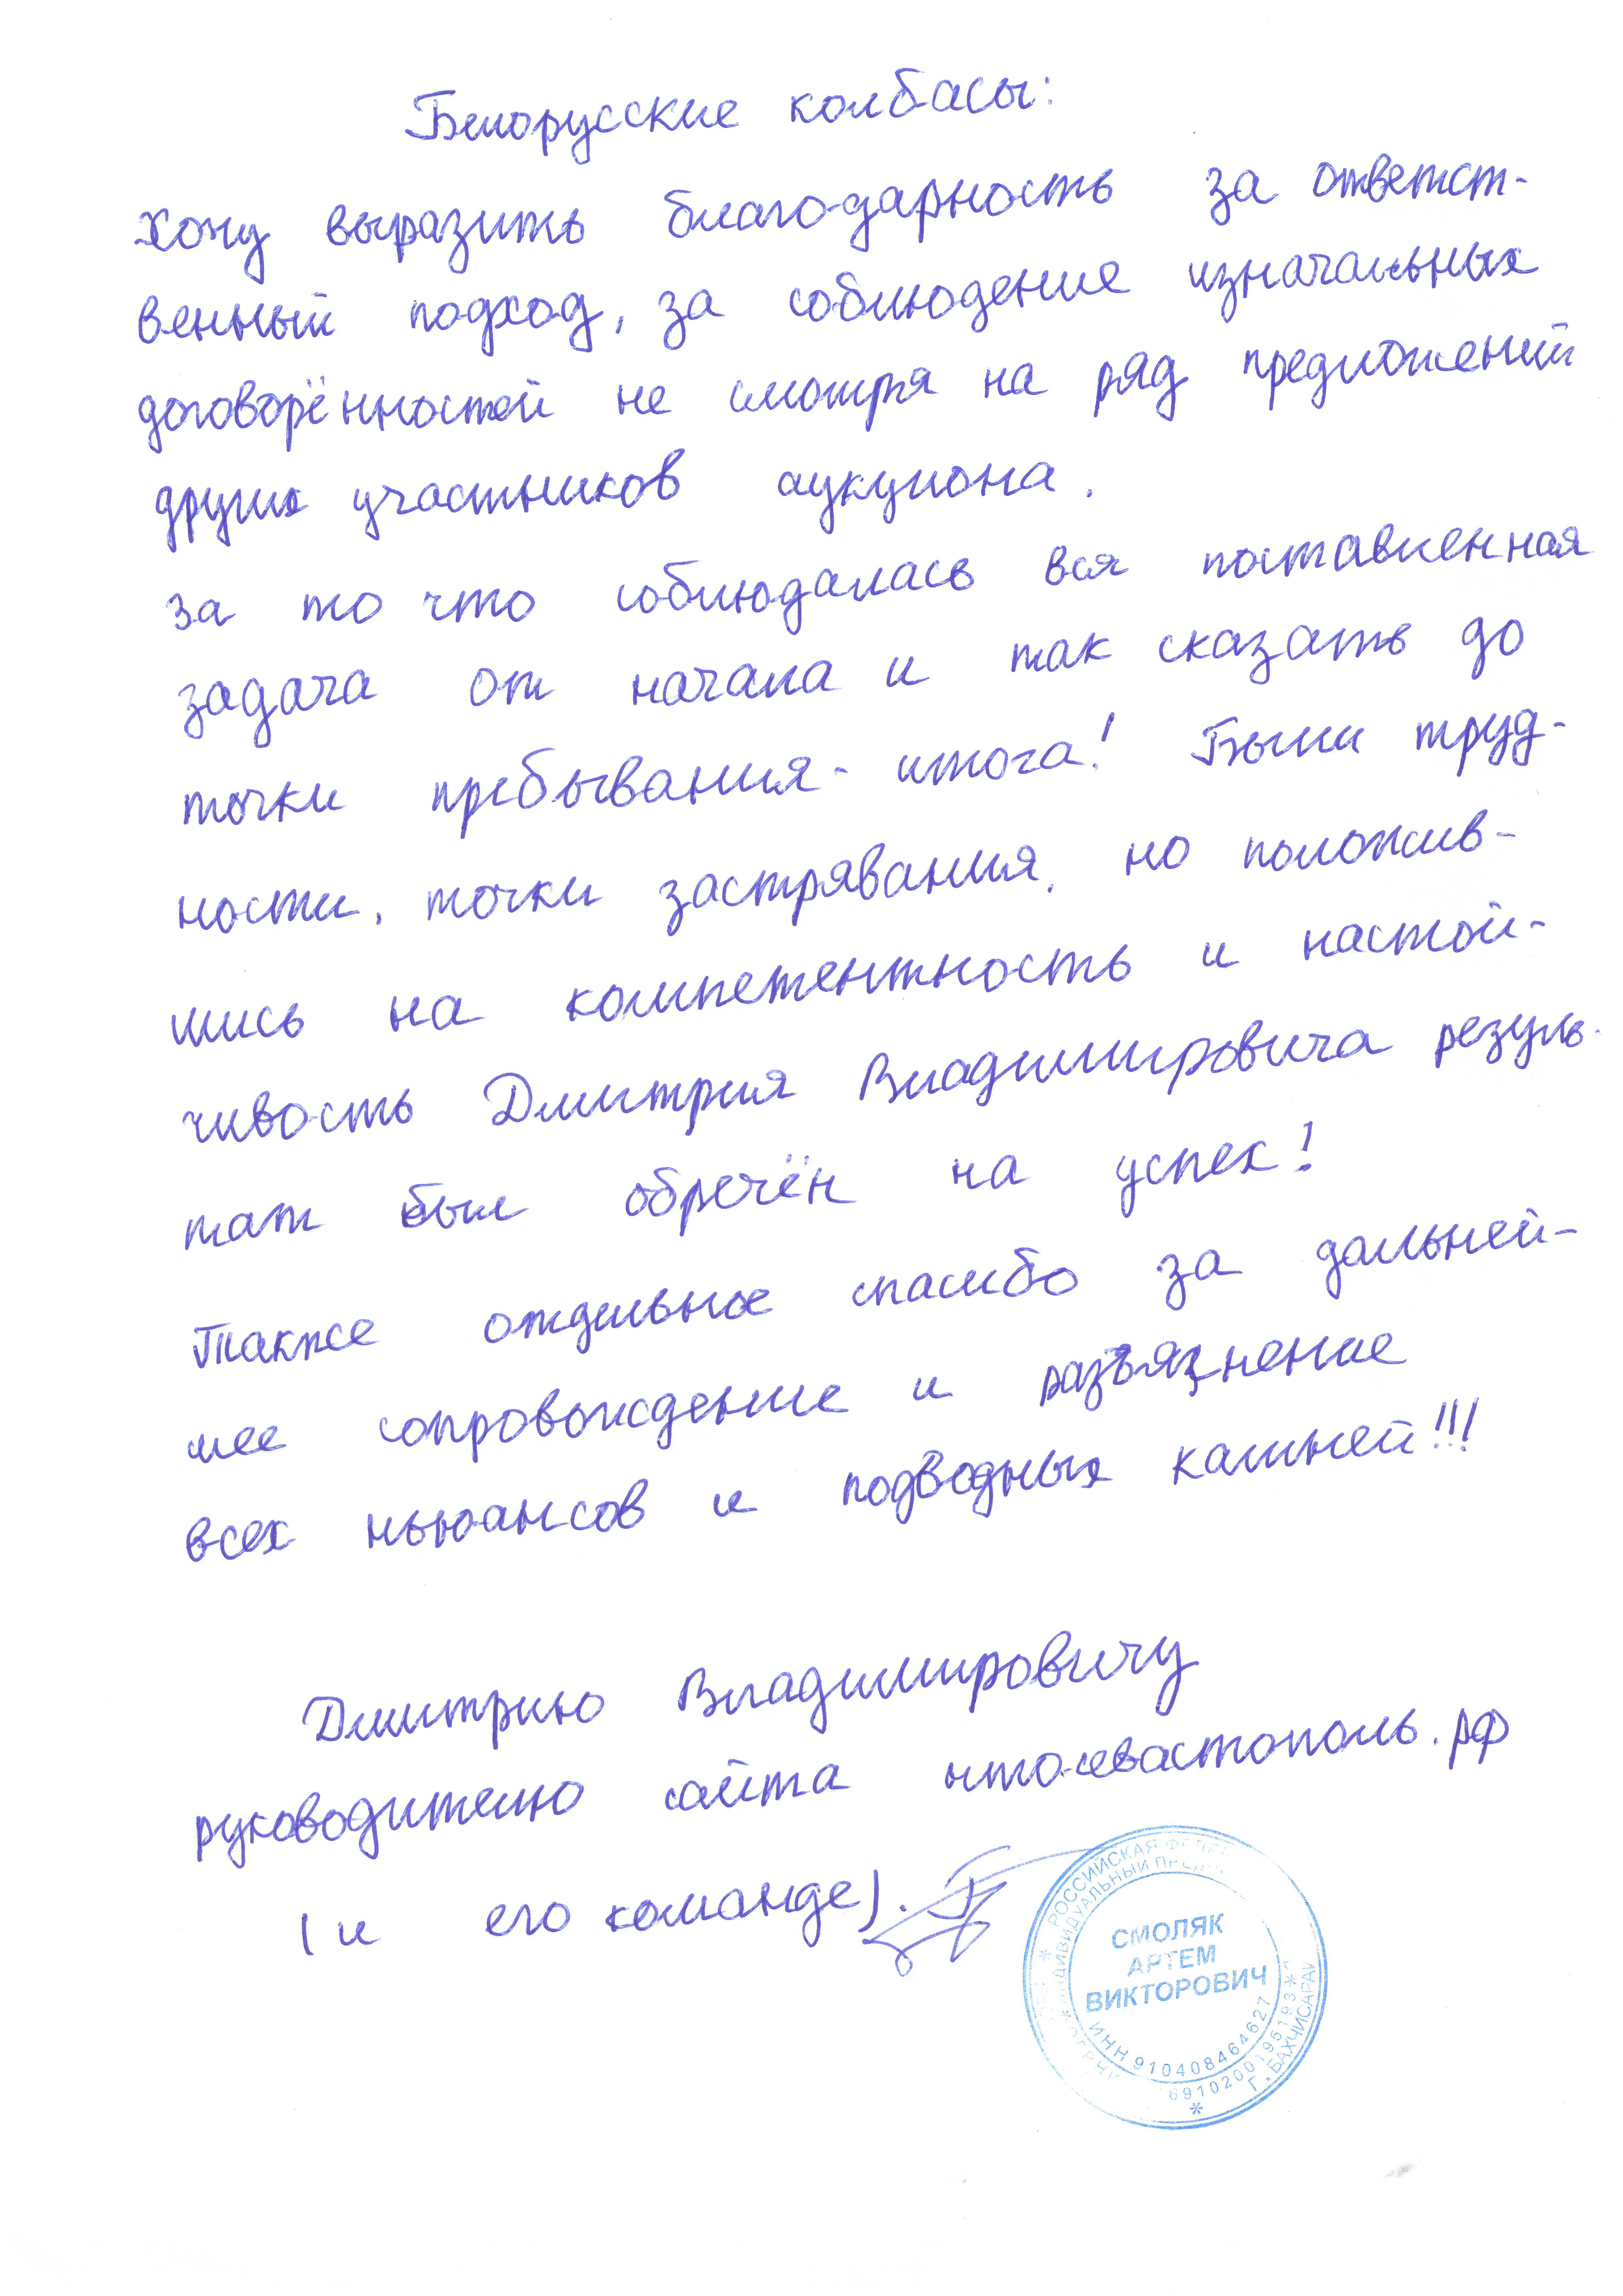 Белорусские колбасы:
Хочу выразить благодарность за ответст-
венный подход, за соблюдение изначальных
договорённостей не смотря на ряд предложений
других участников аукциона.
За то что соблюдалась вся поставленная
задача от начала и так сказать до
точки пребывания - итога! Были труд-
ности, точки застрявания, но положив-
шись на компетентность и настой-
чивость Дмитрия Владимировича резуль-
тат был обречён на успех!
Также отдельное спасибо за дальней-
шее сопровождение и разъязнение
всех ньюансов и подводных камней!!!
Дмитрию Владимировичу
руководителю сайта нтосевастополь.рф
(и его команде).
РОССИЙСКАЯ
ИНДИВИДУАЛЬНЫЙ
СМОЛЯК
АРТЕМ
ВИКТОРОВИЧ
ИНН 910408464627
Г. БАХЧИСАРАЙ